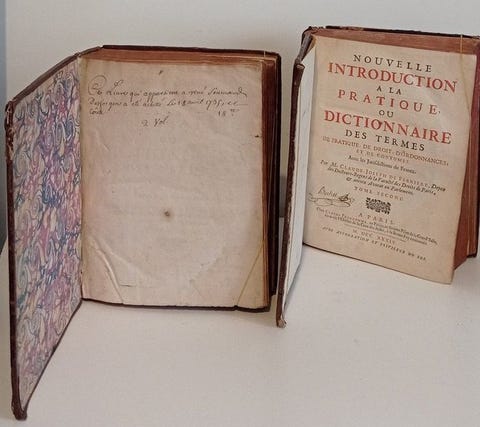 Ce Livre qui appartient a rené
a été acheté Le 18 avril 1735,
Coute 18
2 Vol.
NOUVELLE
INTRODUCTION
A LA
PRATIQUE,
OU
DICTIONNAIRE
DES TERMES
DE PRATIQUE, DE DROIT, D'ORDONNANCES,
ET DE COUTUMES.
Avec les Jurisdictions de France.
Par M. CLAUDE-JOSEPH DE FERRIERE, Doyen
des Docteurs-Regens de la Faculté des Droits de Paris,
& ancien Avocat au Parlement.
TOME SECOND.
A PARIS,
M. DCC. XXXIV.
AVEC APPROBATION ET PRIVILEGE DU ROI.